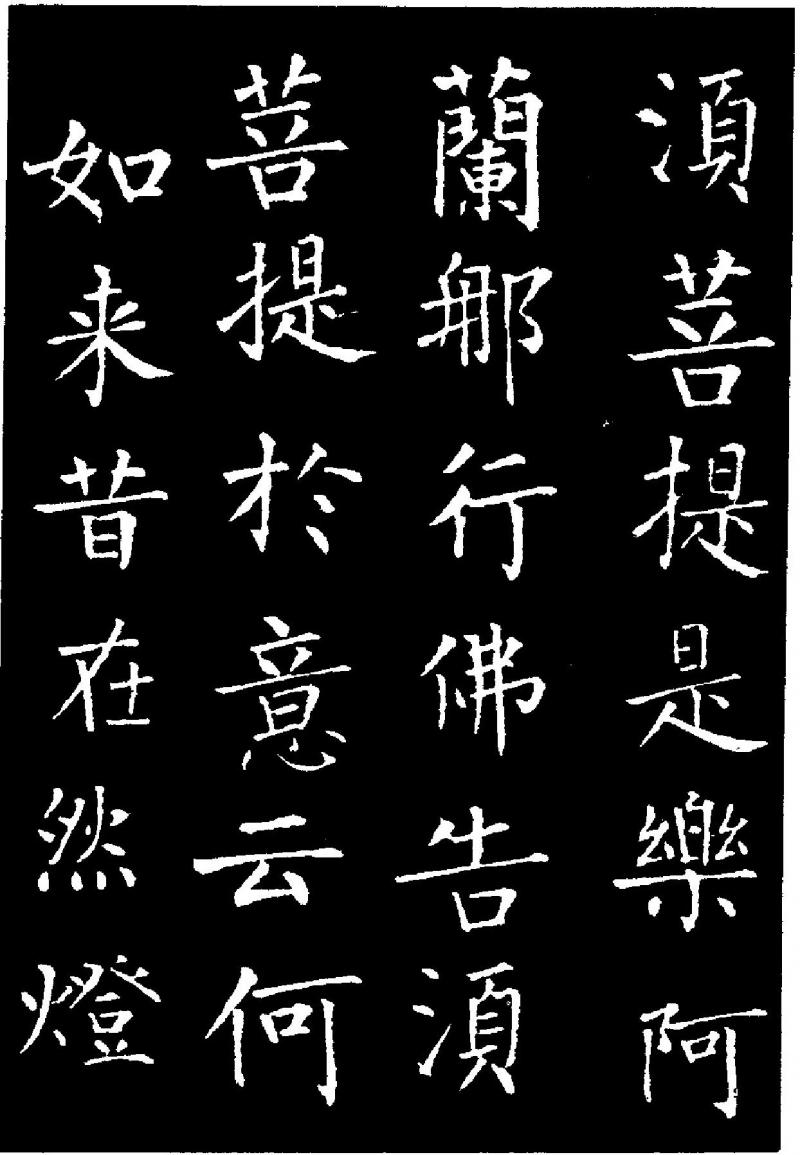 湏菩提是樂阿
蘭那行佛告湏
菩提於意云何
如来昔在然燈